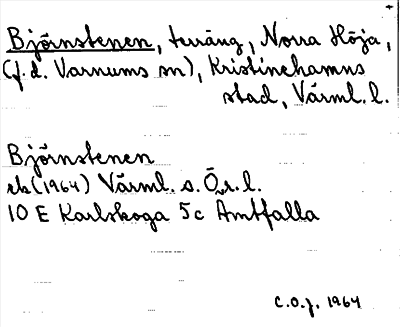 Björnstenen, terräng, Norra Höja,
(f.d. Varnums sn), Kristinehamns
stad, Värml. l.
Björnstenen
ek (1964) Värml. o. Ör. l.
10 E Karlskoga 5c Amtfalla
C.O.f. 1964